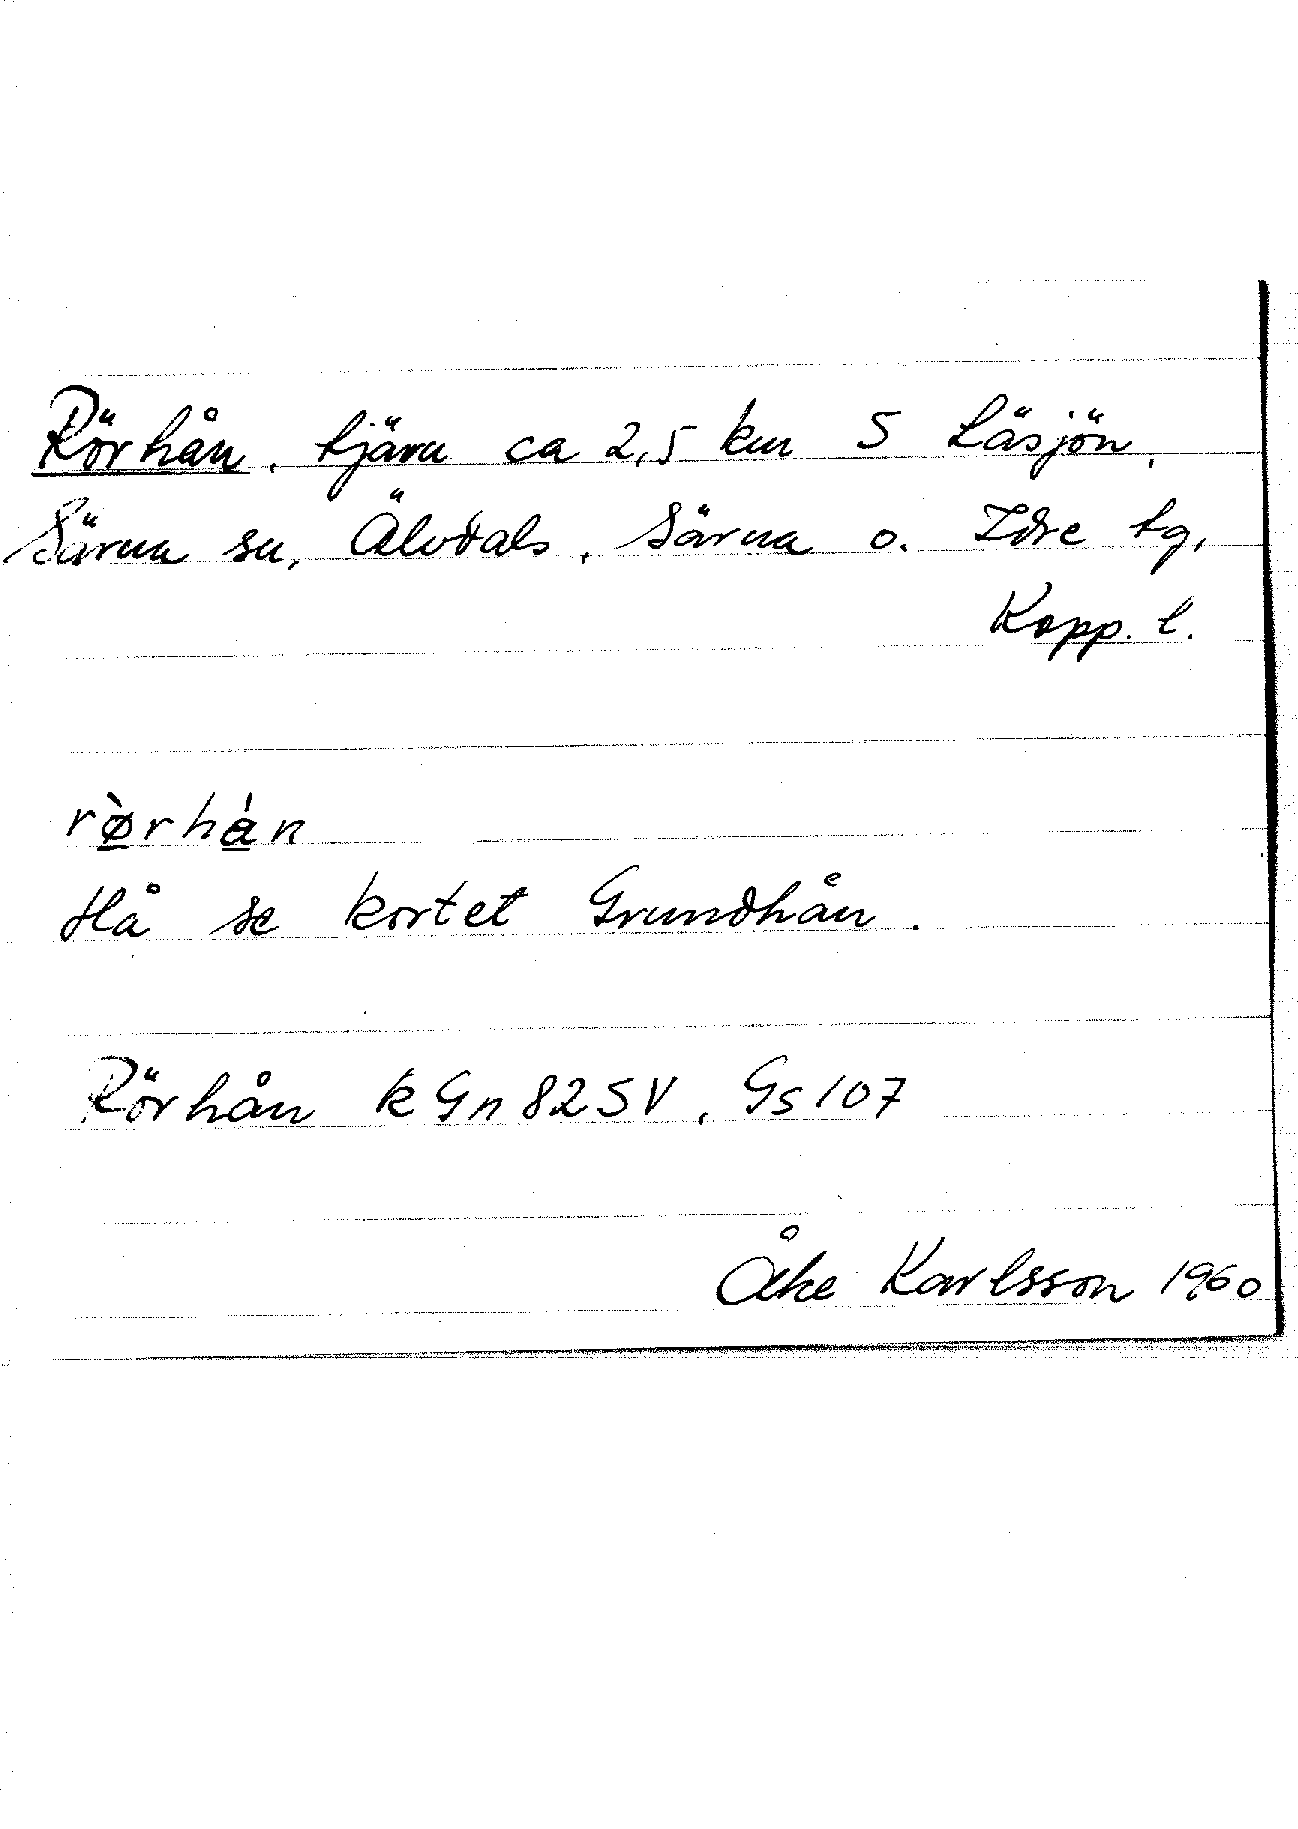 Rörhån, tjärn ca 2,5 km S Läsjön,
Särna sn, Älvdals, Särna o. Idre tg,
Kopp. l.
rø̀rhán
Hå se kortet Grundhån.
Rörhån k Gn 82 SV, Gs 107
Åke Karlsson 1960